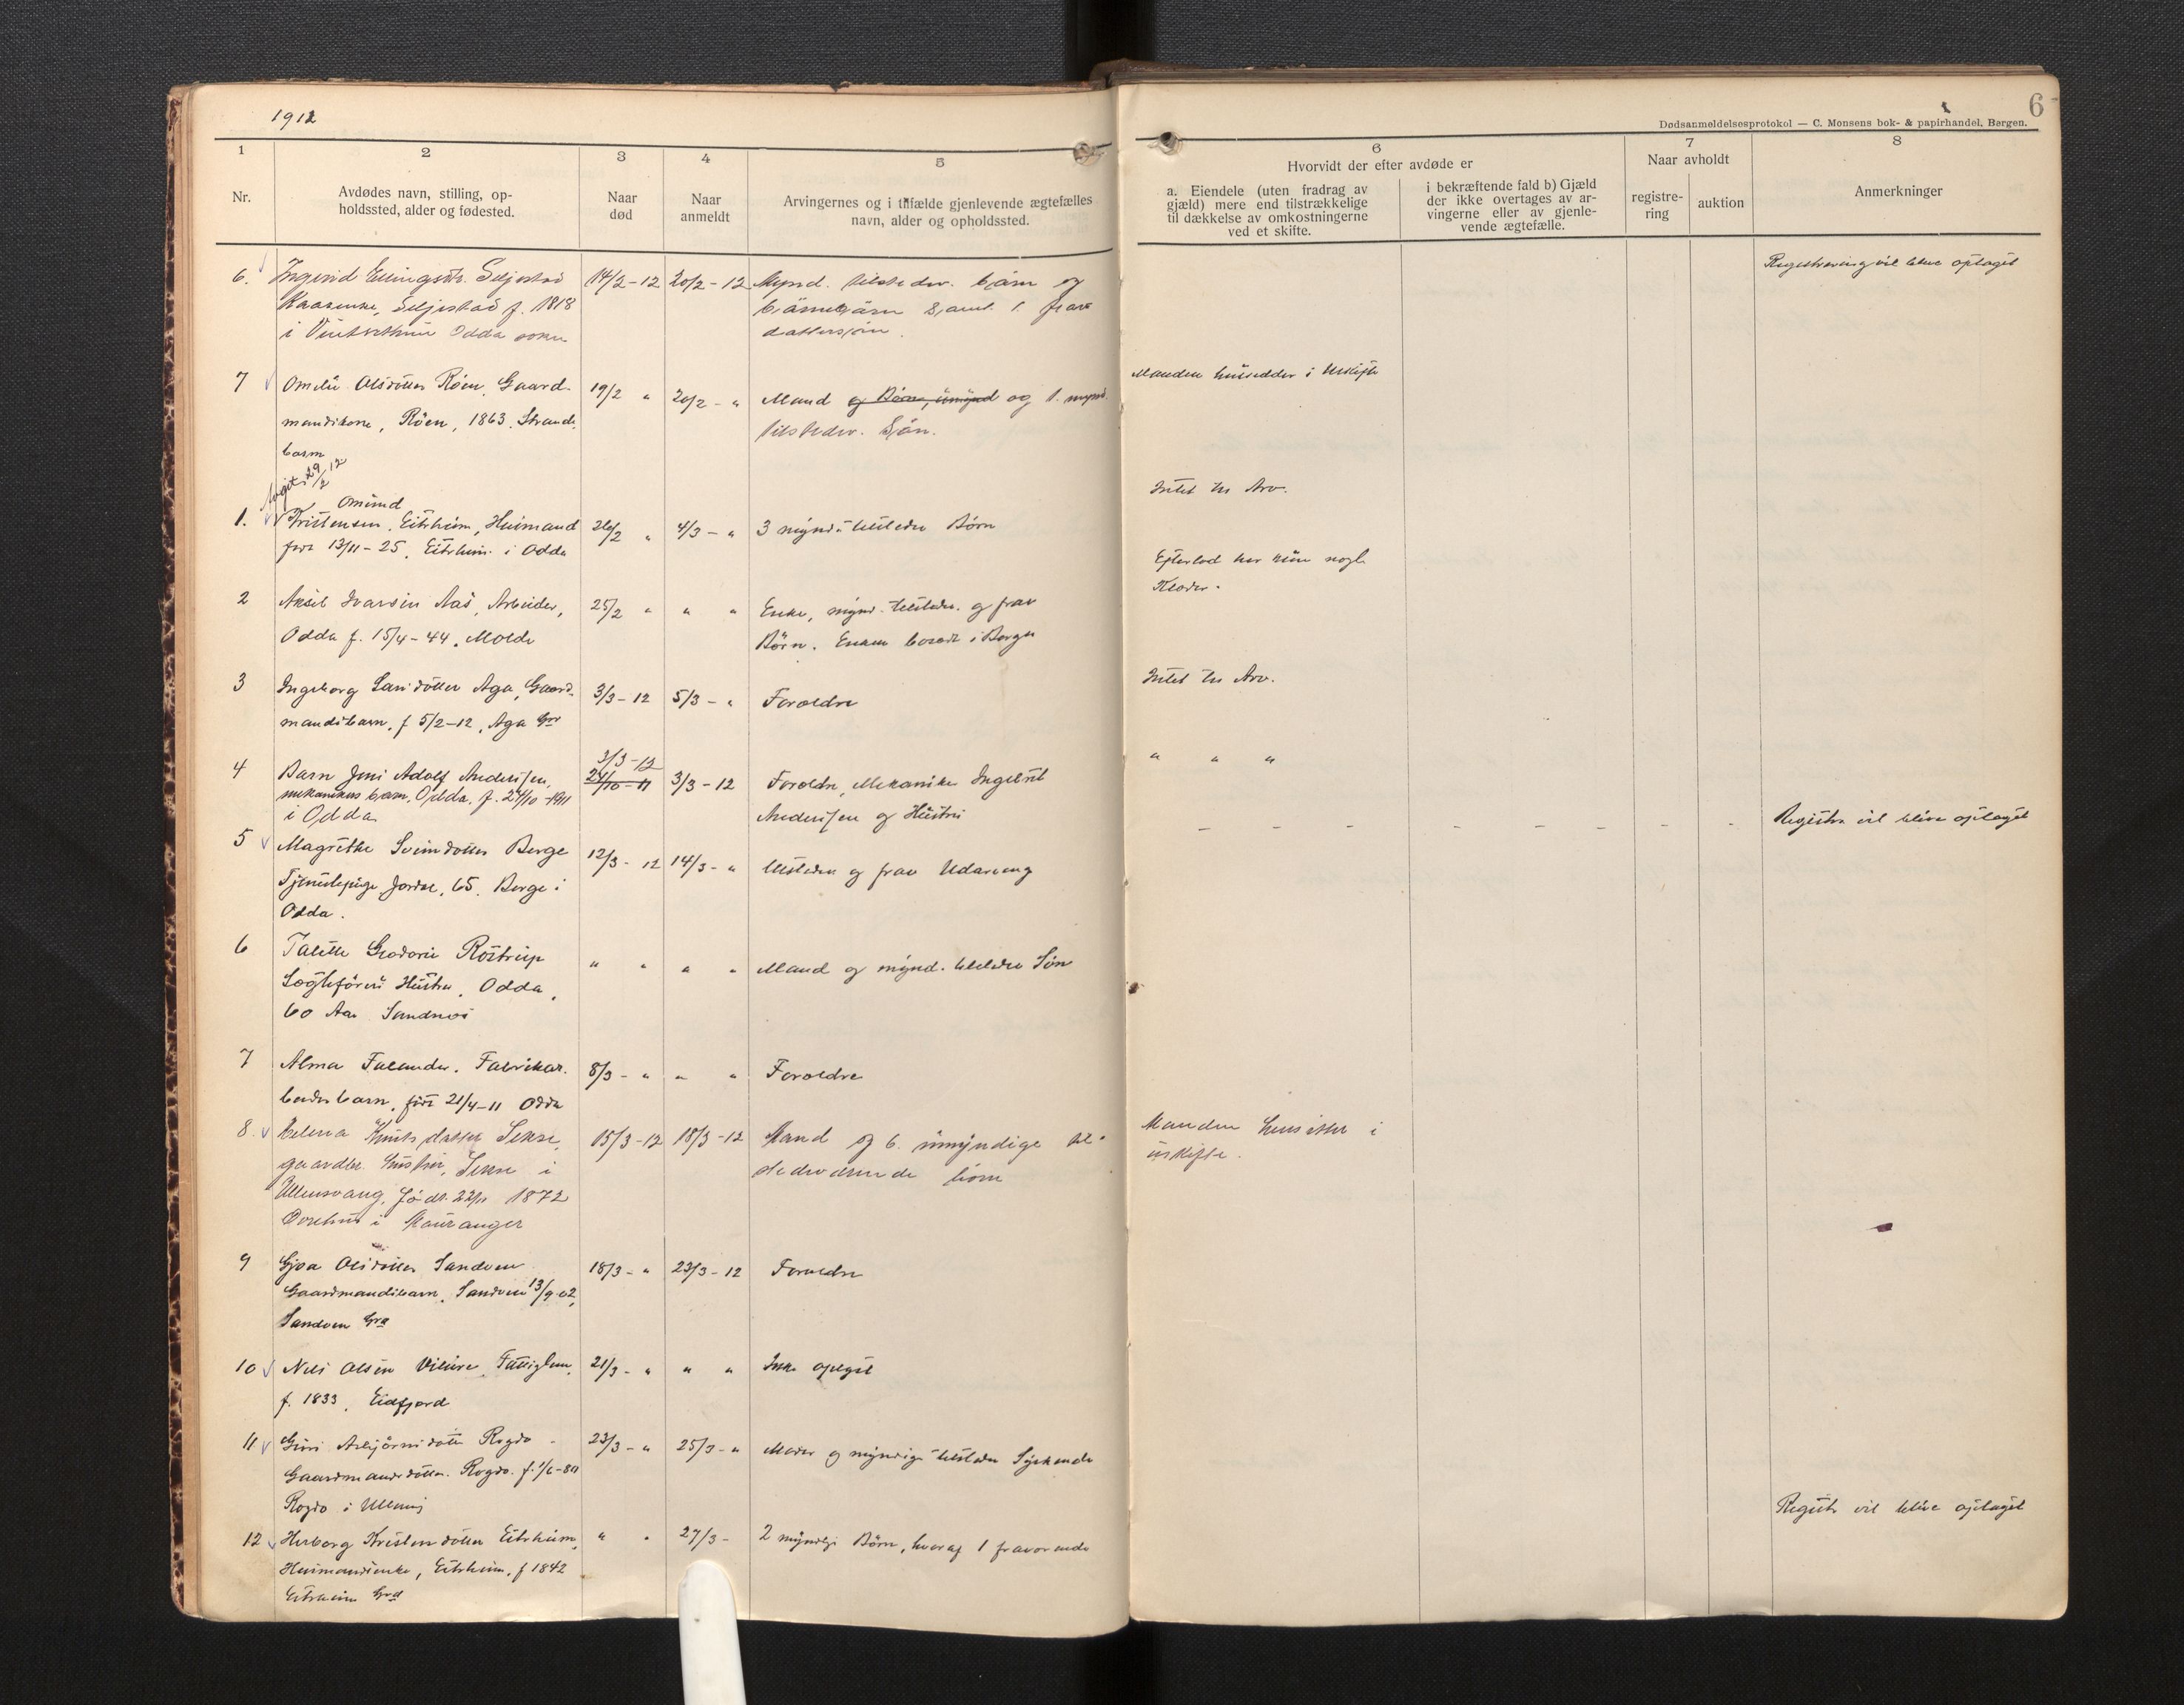 1912
6
Dødsanmeldelsesprotokol — C. Monsens bok- & papirhandel, Bergen.
1
2
3
4
5
6
7
8
Nr.
Avdødes navn, stilling, op-
holdssted, alder og fødested.
Naar
død
Naar
anmeldt
Arvingernes og i tilfælde gjenlevende ægtefælles
navn, alder og opholdssted.
Hvorvidt der efter avdøde er
a. Eiendele (uten fradrag av
gjæld) mere end tilstrækkelige
til dækkelse av omkostningerne
ved et skifte.
i bekræftende fald b) Gjæld
der ikke overtages av ar-
vingerne eller av gjenle-
vende ægtefælle.
Naar avholdt
registre-
ring
auktion
Anmerkninger
6.
Ingerid Ellingsdtr. Seljestad
Kaarenke, Seljestad f. 1818
i Odda sokn
14/2-12
20/2-12
Mynd. tilstedev. børn og
børnebørn samt 1 frav
dattersøn.
Registrering vil blive optaget
7
Olsdotter Røen, Gaard-
mandskone, Røen, 1863. Strande-
barm
19/2 "
20/2 - "
Mand og Børn, umynd og 1. mynd.
tilstedev. Søn.
Manden hensidder i Uskifte
29/2 12
1.
Omund
Kristensen, Eitrheim, Huimand
født 13/11-25, Eitrheim i Odda
26/2 "
4/3 - "
3 mynd. tilstedev Børn
Intet til Arv.
2
Aksel Ivarsen Aas, Arbeider,
Odda f. 15/4-44, Molde
25/2 "
" "
Enke, mynd. tilstedev. og frav
Børn. Enken bosadt i Bergen
Efterlod her kun nogle
Klæder.
3
Ingeborg Larsdotter Aga, Gaard-
mandsbarn, f 5/2-12, Aga Grd
3/3-12
5/3 - "
Foreldre
Intet til Arv.
4
Barn Jens Adolf Andersen,
mekanikers barn, Odda. f. 24/10-1911
i Odda
3/3-12
24/10-11
3/3-12
Foreldre, Mekaniker Ingebret
Andersen og Hustru
" " "
5
Magrethe Svendotter Berge
Tjenestepige Jordal, 65. Berge i
Odda.
12/3-12
14/3- "
tilstedev og frav Udarving
- - - - - - - -
Registr vil blive optaget
6
Talette Rostrup
Sagførers Hustru, Odda,
60 Aar Sandnæs
" "
" "
Mand og mynd. tilstedev Søn
7
Alma Falander. Fabrikar-
beiders barn, født 21/4-11 Odda
8/3- "
" "
Foreldre
8.
Helena Knuts datter Sekse,
gaardbr. hustru, Sekse i
Ullensvang, født 22/11 1872
i Mauranger
15/3-12
18/3-12
Mand og 6. umyndige til-
stedeværende børn
Manden hensitter i
uskifte.
9
Gjoa Olsdotter Sandven
Gaardmandsbarn, Sandven 13/9-02,
Sandven Grd
18/3- "
23/3-12
Foreldre
10
Nils Olsen Viluve, Fattiglem,
f. 1833, Eidfjord
21/3- "
" "
Ikke opgit
11
Guri Asbjørnsdotter Rogdo -
Gaardmandsdotter. Rogdo. f. 1/6-80
Rogdo i
23/3- "
25/3- "
Moder og myndige tilstedev Syskende
12
Herborg Kristendotter Eitrheim,
Huimandsenke, Eitrheim, f 1842
Eitrheim Grd
" "
27/3-
2 myndige Børn, hveraf 1 fraværende
Registr vil blive optaget